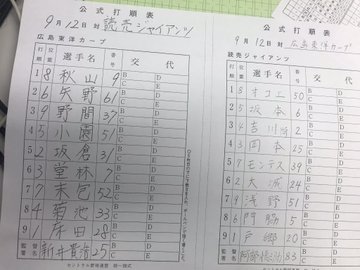 公式打順表
9月12日 対 読売ジャイアンツ
広島東洋カープ
打順 位置 選手名 番号 交代
1 8 秋山 9 B C D E
2 6 矢野 61 B C D E
3 9 野間 37 B C D E
4 5 小園 51 B C D E
5 2 坂倉 31 B C D E
6 3 堂林 7 B C D E
7 7 末包 52 B C D E
8 4 菊池 33 B C D E
9 1 床田 28 B C D E
監督署名 新井貴浩 25
セントラル野球連盟 統一様式
公式打順表
9月12日 対 広島東洋カープ
読売ジャイアンツ
打順 位置 選手名 番号 交代
1 オコエ 50 B C D E
2 5 坂本 6 B C D E
3 4 吉川 2 B C D E
4 3 岡本 25 B C D E
5 7 モンテス 39 B C D E
6 2 大城 24 B C D E
7 浅野 51 B C D E
8 6 門脇 5 B C D E
9 1 戸郷 20 B C D E
監督署名 阿部慎之助 83